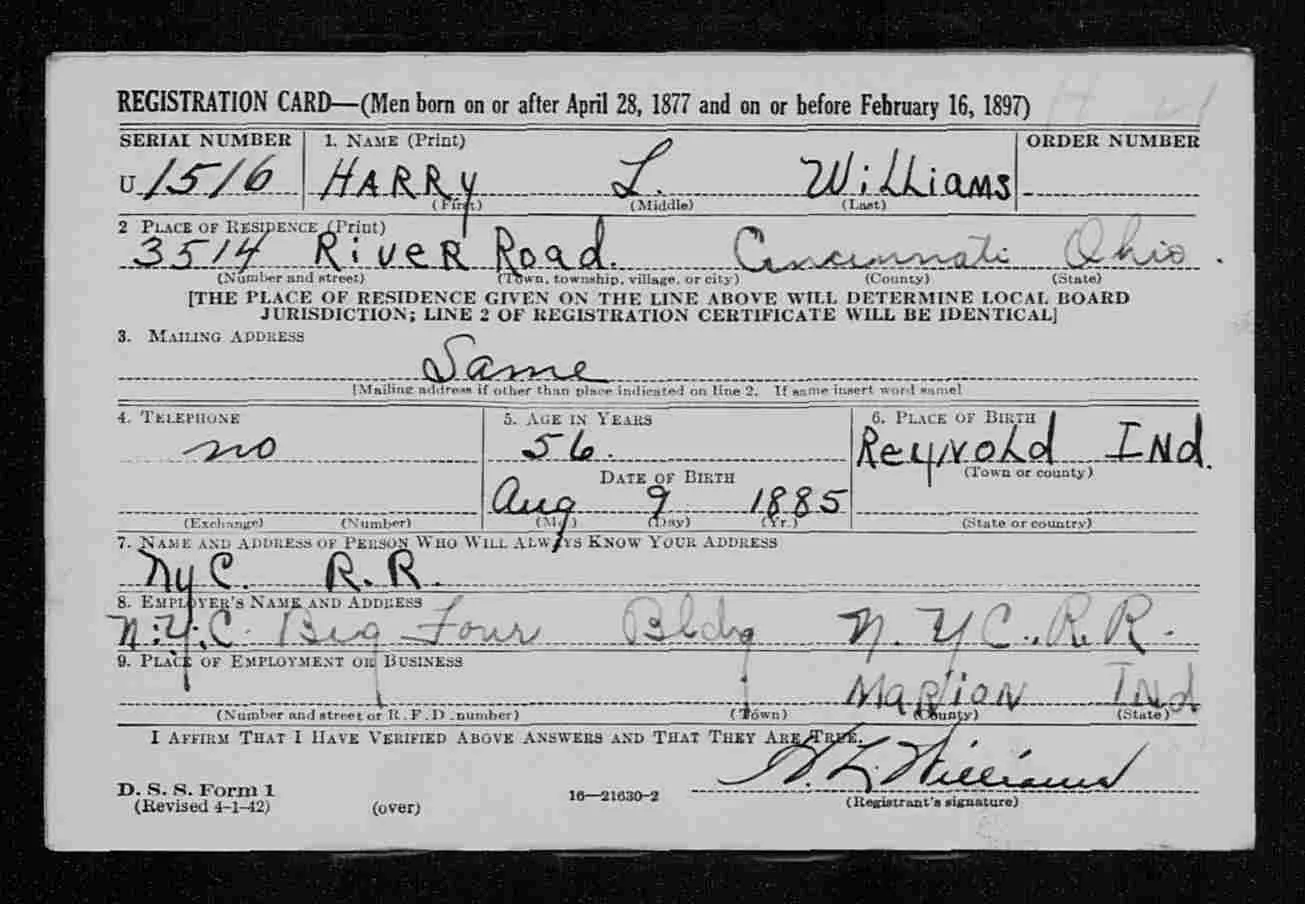 REGISTRATION CARD—(Men born on or after April 28, 1877 and on or before February 16, 1897)
SERIAL NUMBER 1. NAME (Print) ORDER NUMBER
U 1516 HARRY L. WiLLiAMS
(First) (Middle) (Last)
2 PLACE OF RESIDENCE (Print)
3514 RiveR Road. Cincinnati Ohio.
(Number and street) (Town, township, village, or city) (County) (State)
[THE PLACE OF RESIDENCE GIVEN ON THE LINE ABOVE WILL DETERMINE LOCAL BOARD
JURISDICTION; LINE 2 OF REGISTRATION CERTIFICATE WILL BE IDENTICAL]
3. MAILING ADDRESS
Same
[Mailing address if other than place indicated on line 2. If same insert word same]
4. TELEPHONE 5. AGE IN YEARS 6. PLACE OF BIRTH
no 56. ReyNoLd INd.
DATE OF BIRTH (Town or county)
Aug 9 1885
(Exchange) (Number) (Mo.) (Day) (Yr.) (State or country)
7. NAME AND ADDRESS OF PERSON WHO WILL ALWAYS KNOW YOUR ADDRESS
NyC. R.R.
8. EMPLOYER'S NAME AND ADDRESS
N.Y.C. Big Four Bldg N.Y C., R.R.
9. PLACE OF EMPLOYMENT OR BUSINESS
MaRioN INd
(Number and street or R.F.D. number) (Town) (County) (State)
I AFFIRM THAT I HAVE VERIFIED ABOVE ANSWERS AND THAT THEY ARE TRUE.
H. L. Williams
D. S. S. Form 1
(Revised 4-1-42) (over) 16—21630-2 (Registrant's signature)